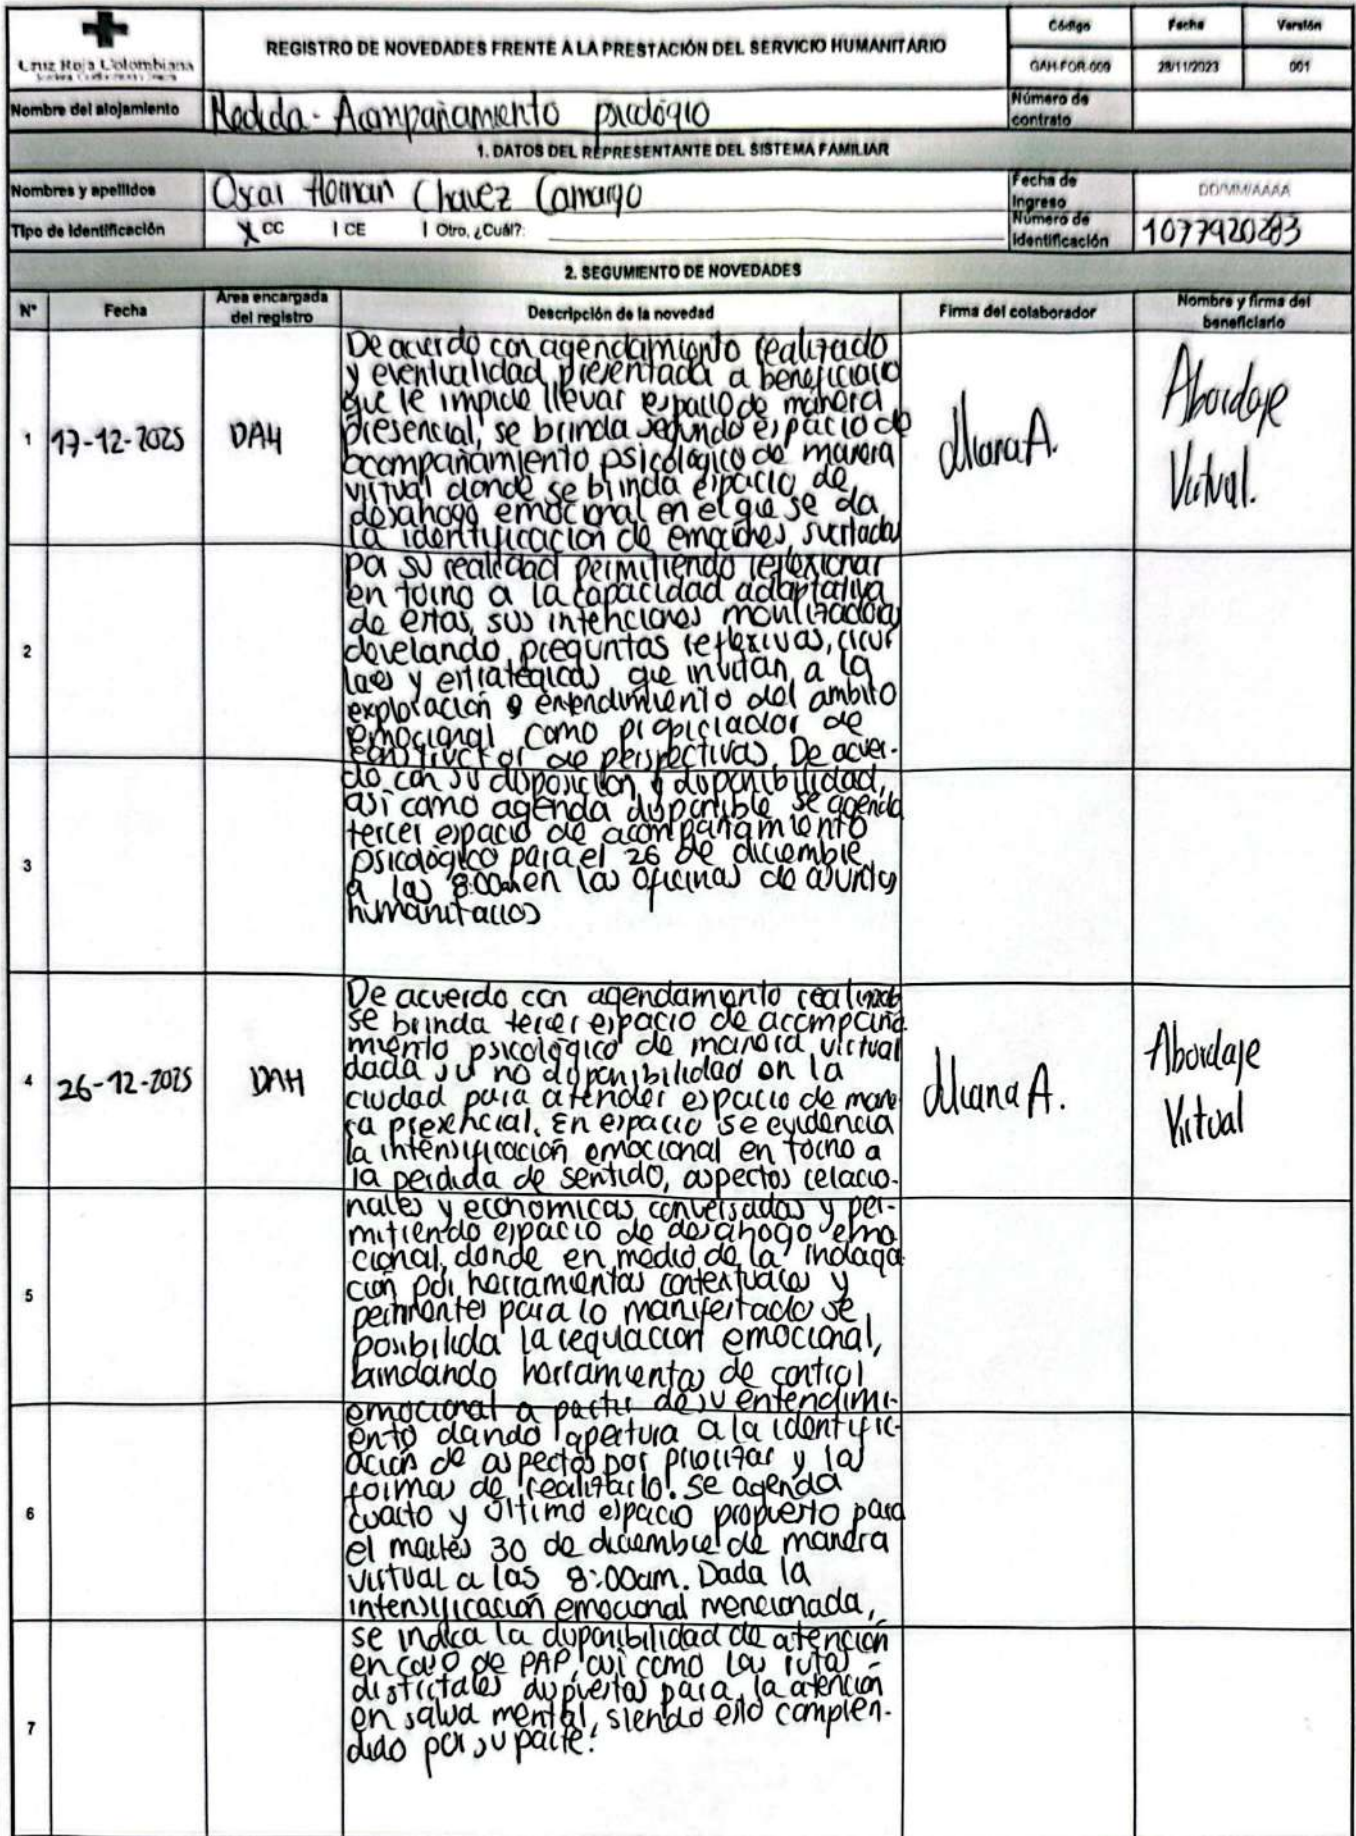 Cruz Roja Colombiana
REGISTRO DE NOVEDADES FRENTE A LA PRESTACIÓN DEL SERVICIO HUMANITARIO
Código
Fecha
Versión
GAH-FOR-009
28/11/2023
001
Nombre del alojamiento
Medida - Acompañamiento psicológico
Número de
contrato
1. DATOS DEL REPRESENTANTE DEL SISTEMA FAMILIAR
Nombres y apellidos
Oscar Hernan Chavez Camargo
Fecha de
Ingreso
DD/MM/AAAA
Tipo de Identificación
X CC
CE
Otro, ¿Cuál?:
Número de
Identificación
1077920283
2. SEGUMIENTO DE NOVEDADES
N°
Fecha
Área encargada
del registro
Descripción de la novedad
Firma del colaborador
Nombre y firma del
beneficiario
1
17-12-2025
DAH
De acuerdo con agendamiento realizado
y eventualidad presentada a beneficiario
que le impide llevar espacio de manera
presencial, se brinda segundo espacio de
acompañamiento psicológico de manera
virtual donde se brinda espacio de
desahogo emocional en el que se da
la identificación de emociones suscitadas
por su realidad permitiendo reflexionar
en torno a la capacidad adaptativa
de estas, sus intenciones movilizadoras
develando preguntas reflexivas, circu
lares y estratégicas que invitan a la
exploración y entendimiento del ambito
emocional como propiciador de
constructor de perspectivas. De acuer-
do con su disposición y disponibilidad,
así como agenda disponible se agenda
tercer espacio de acompañamiento
psicológico para el 26 de diciembre
a las 8:00am en las oficinas de asuntos
humanitarios
Abordaje
Virtual.
2
3
4
26-12-2025
DAH
De acuerdo con agendamiento realizado
se brinda tercer espacio de acompaña
miento psicológico de manera virtual
dada su no disponibilidad en la
ciudad para atender espacio de mane
ra presencial. En espacio se evidencia
la intensificación emocional en torno a
la perdida de sentido, aspectos relacio-
nales y economicas conversadas y per-
mitiendo espacio de desahogo emo
cional, donde en medio de la indaga
ción por herramientas contextuales y
pertinentes para lo manifestado se
posibilida la regulación emocional,
brindando herramientas de control
emocional a partir de su entendimi-
ento dando apertura a la identific-
ación de aspectos por priorizar y las
formas de realizarlo. Se agenda
cuarto y último espacio propuesto para
el martes 30 de diciembre de manera
virtual a las 8:00am. Dada la
intensificación emocional mencionada,
se indica la disponibilidad de atención
en caso de PAP, así como las rutas
distritales dispuestas para la atención
en salud mental, siendo esto compren-
dido por su parte.
Abordaje
Virtual
5
6
7